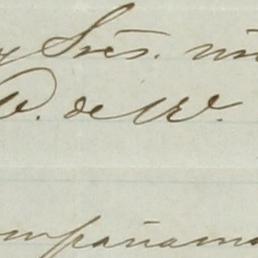 y Sres. mi
D. de W.
mpañamo